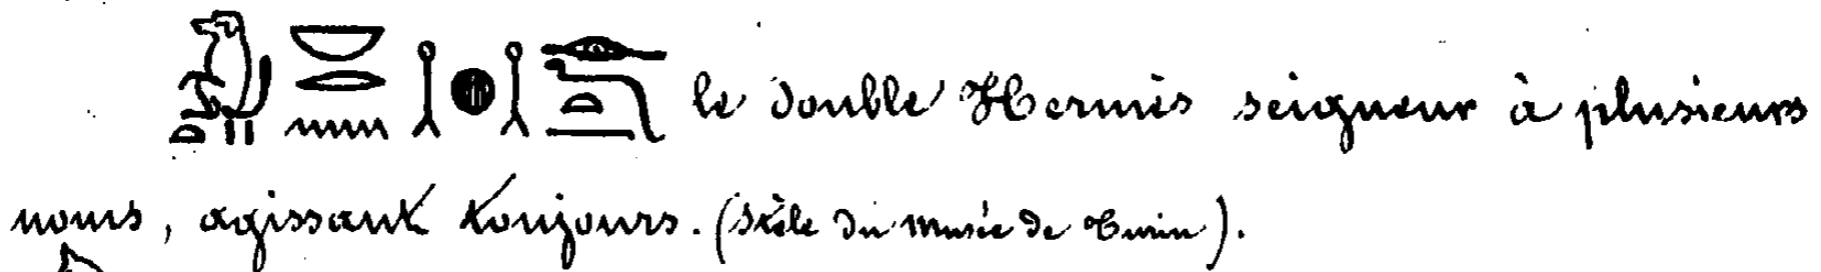 le double Hermès seigneur à plusieurs
noms, agissant toujours. (Stèle du Musée de Turin).